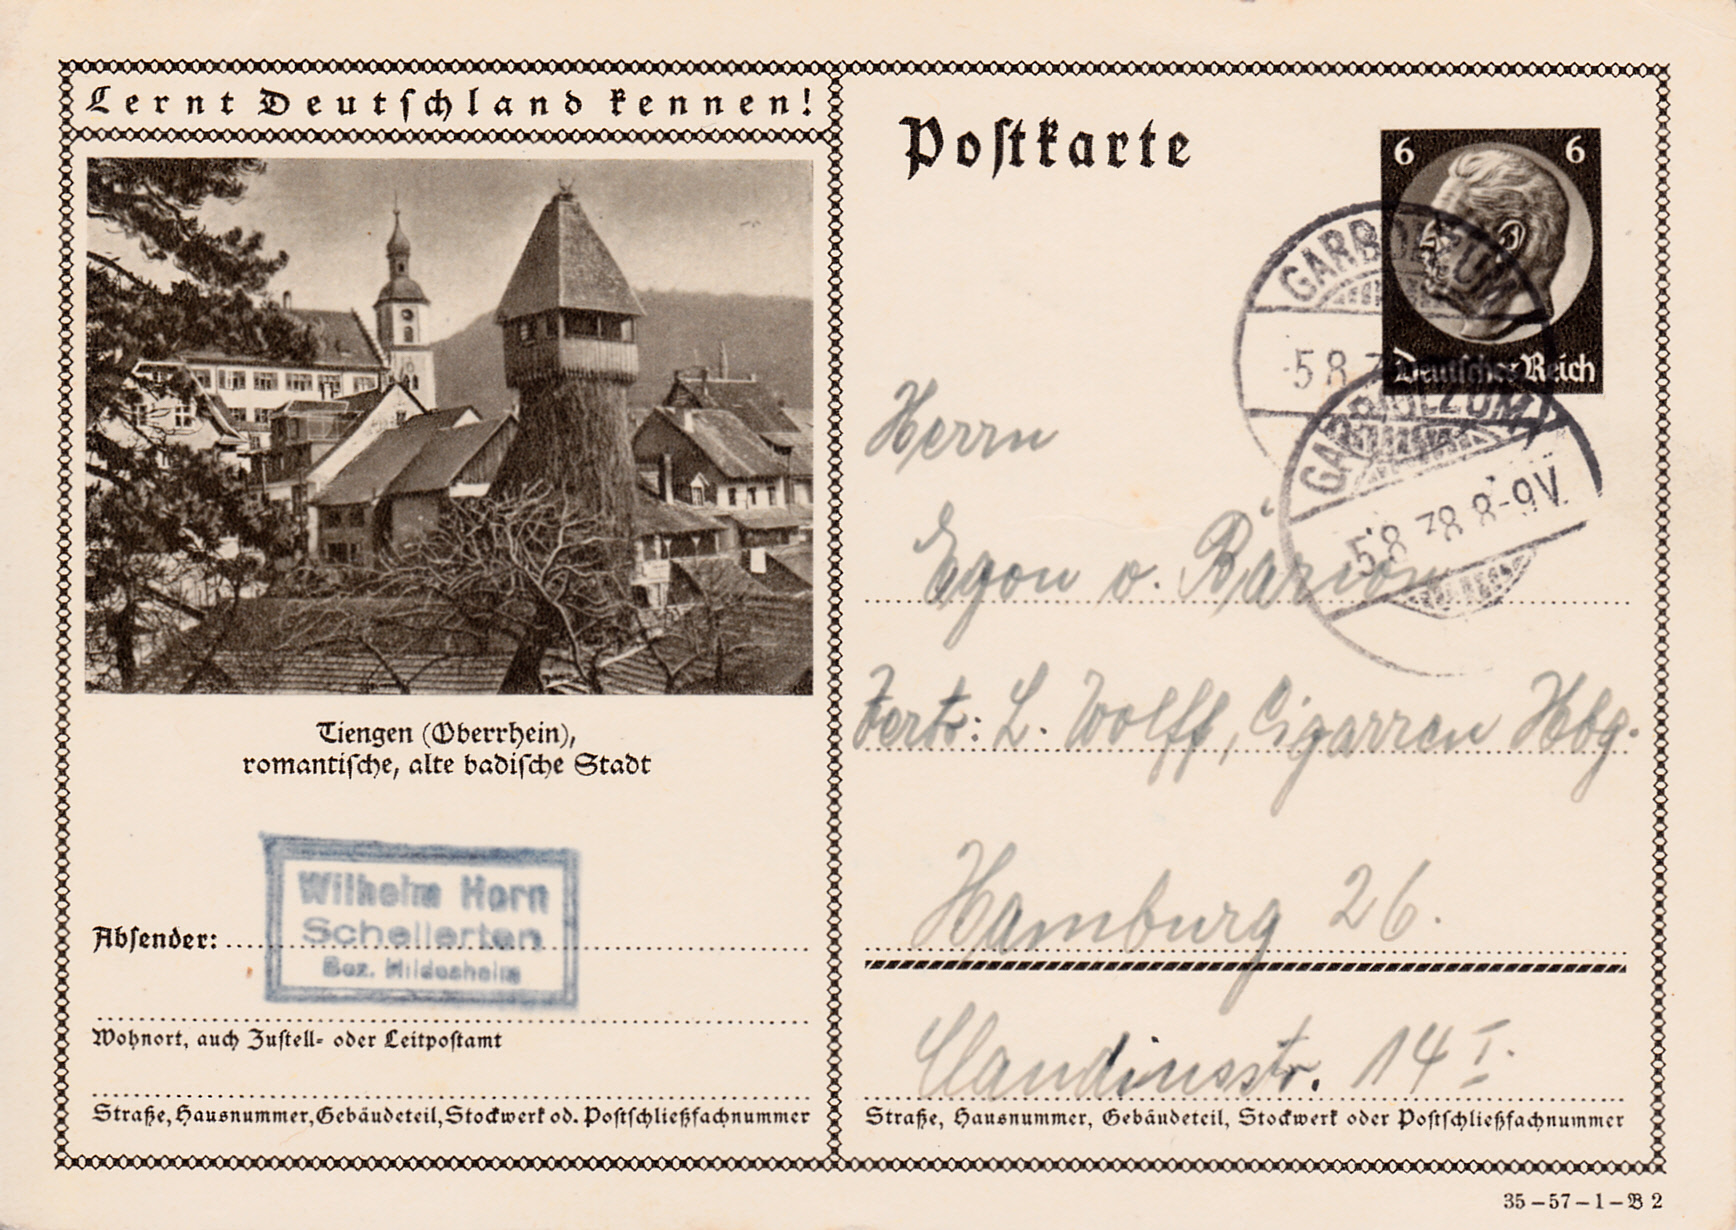 Lernt Deutschland kennen!
Tiengen (Oberrhein),
romantische, alte badische Stadt
Wilhelm Horn
Schellerten
Bez. Hildesheim
Absender:
Wohnort, auch Zustell- oder Leitpostamt
Straße, Hausnummer, Gebäudeteil, Stockwerk od. Postschließfachnummer
Postkarte
6 6
Deutsches Reich
GARBOLZUM
5.8.
GARBOLZUM
5.8.38.8-9V.
Herrn
Egon v. Barion
Vertr: L. Wolff, Cigarren Hbg.
Hamburg 26.
Claudiusstr. 14 I.
Straße, Hausnummer, Gebäudeteil, Stockwerk oder Postschließfachnummer
35-57-1-B 2